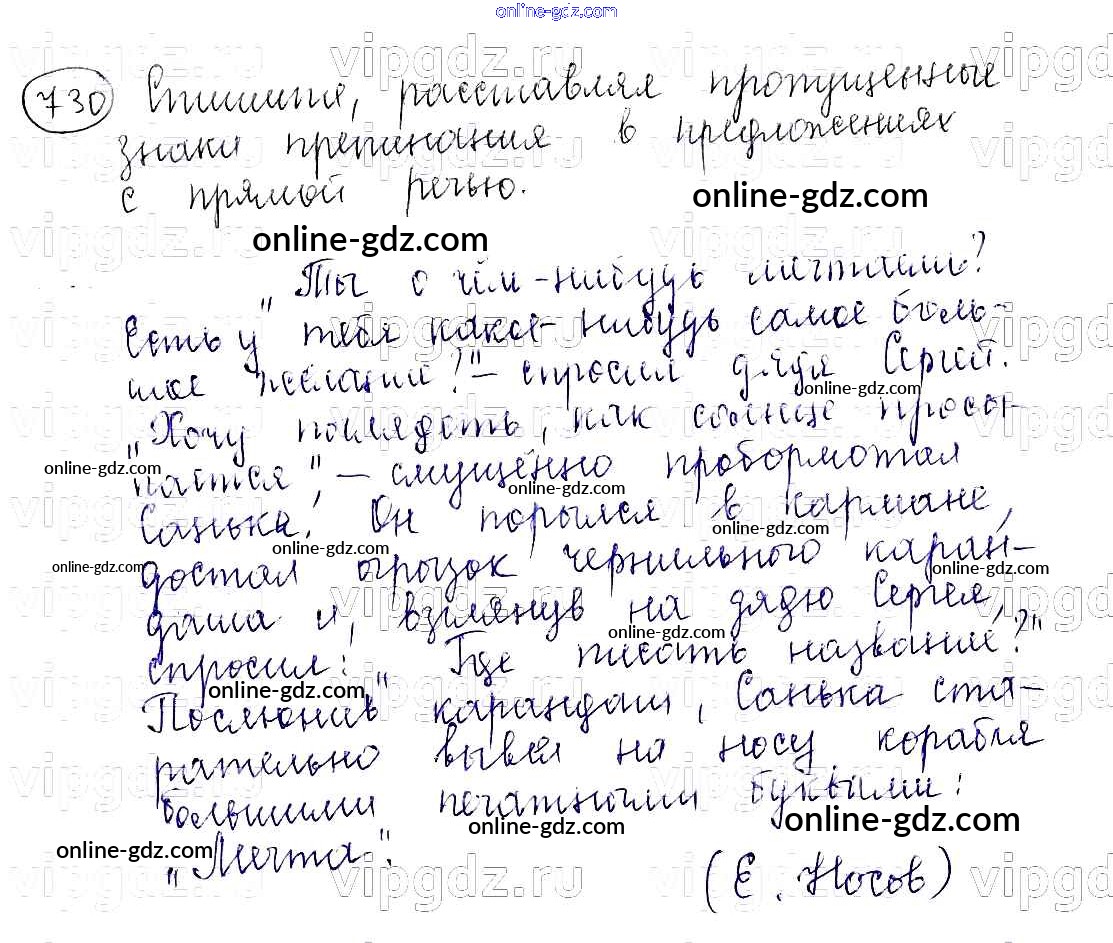 online-gdz.com
730 Спишите, расставляя пропущенные
знаки препинания в предложениях
с прямой речью.
online-gdz.com
online-gdz.com
„Ты о чём-нибудь мечтаешь?
Есть у тебя какое-нибудь самое боль-
шое желание?" – спросил дядя Сергей.
online-gdz.com
„Хочу поглядеть, как солнце просы-
online-gdz.com
пается", – смущённо пробормотал
online-gdz.com
Санька. Он порылся в кармане,
online-gdz.com
online-gdz.com
достал огрызок чернильного каран-
online-gdz.com
online-gdz.com
даша и, взглянув на дядю Сергея,
online-gdz.com
спросил: „Где писать название?"
online-gdz.com
Послюнив карандаш, Санька ста-
рательно вывел на носу корабля
большими печатными буквами:
online-gdz.com
online-gdz.com
online-gdz.com
„Мечта".
(Е. Носов)
vipgdz.ru